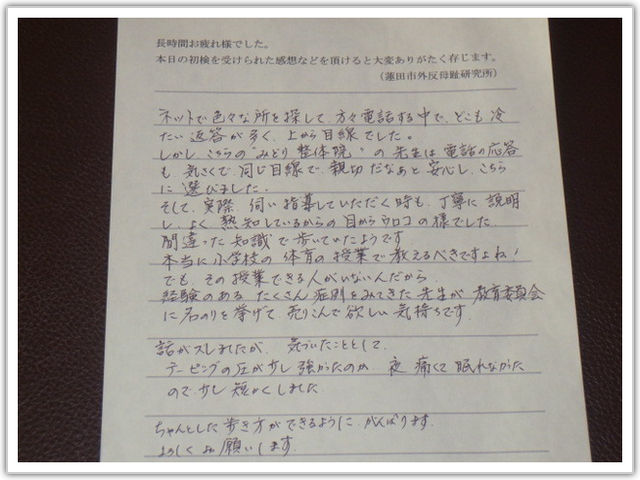 長時間お疲れ様でした。
本日の初検を受けられた感想などを頂けると大変ありがたく存じます。
（蓮田市外反母趾研究所）
ネットで色々な所を探して、方々電話する中で、どこも冷
たい返答が多く、上から目線でした。
しかし、こちらの"みどり整体院"の先生は電話の応答
も気さくで、同じ目線で、親切だなぁと安心し、こちら
に選びました。
そして、実際、伺い指導していただく時も、丁寧に説明
し、よく熟知しているからの目からウロコの様でした。
間違った知識で歩いていたようです。
本当に小学校の体育の授業で教えるべきですよね!
でも、その授業できる人がいないんだから、
経験のあるたくさん症例をみてきた先生が教育委員会
に名のりを挙げて売りこんで欲しい気持ちです。
話がスレましたが、気づいたこととして、
テーピングの圧が少し強かったのか 夜痛くて眠れなかった
ので少し短かくしました
ちゃんとした歩き方ができるように、がんばります。
よろしくお願いします。